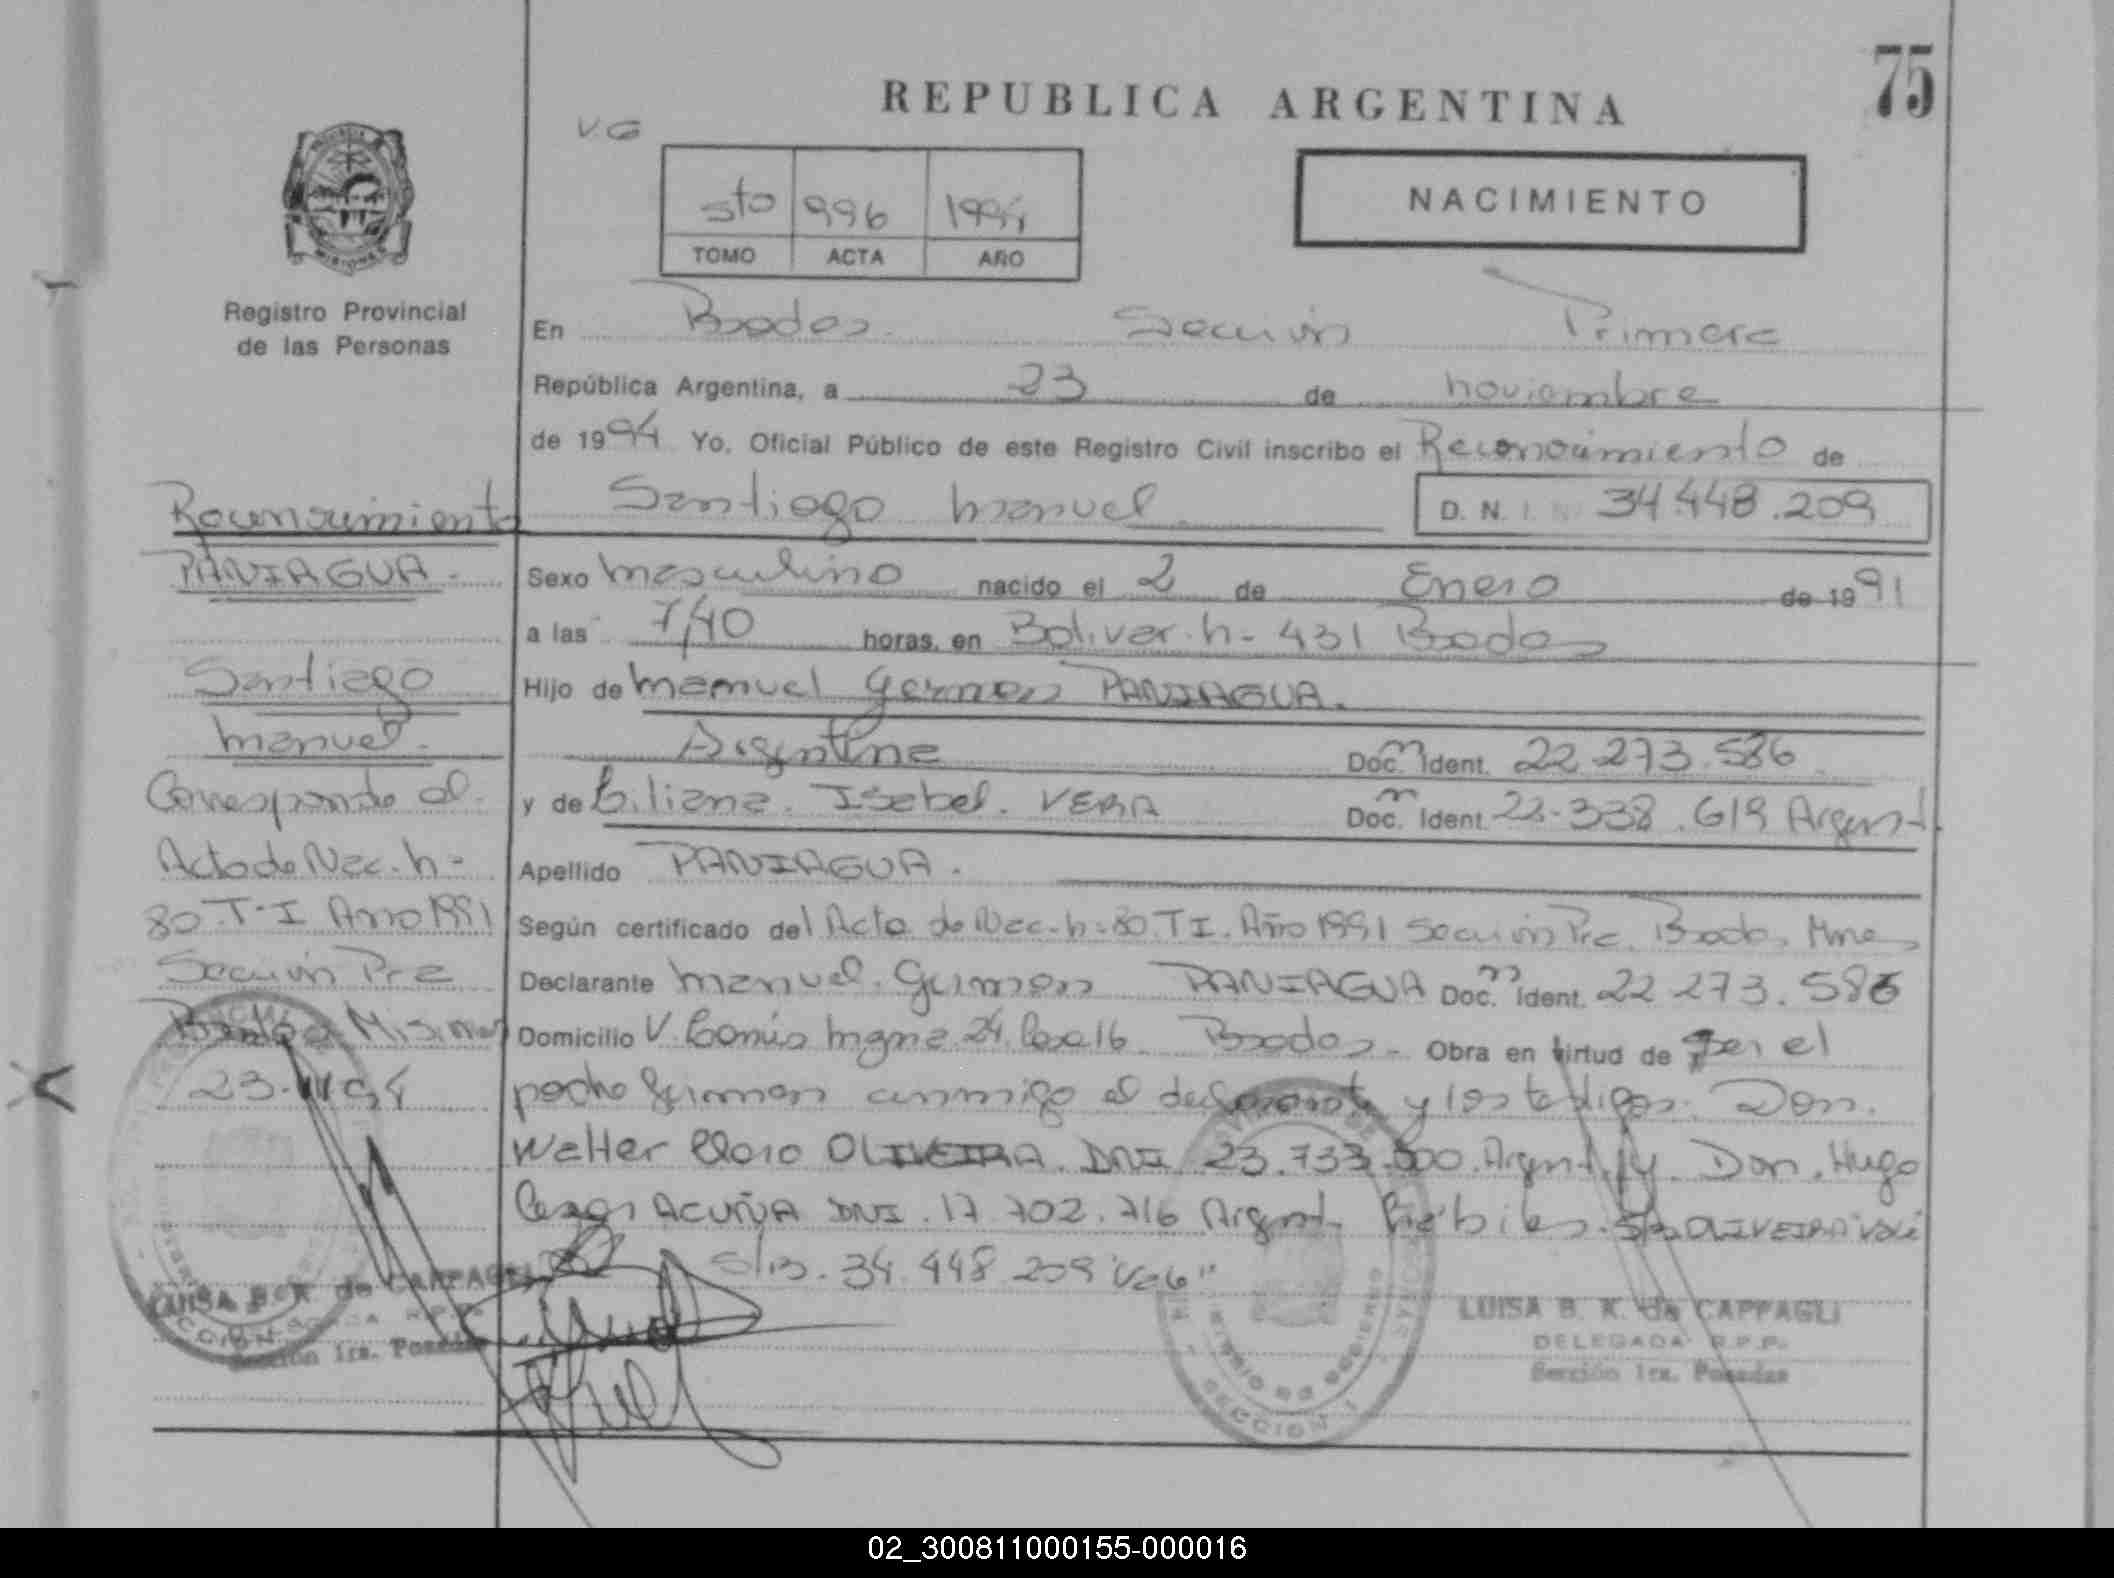 75
REPUBLICA ARGENTINA
VG
NACIMIENTO
5to 996 1994
TOMO ACTA AÑO
Registro Provincial
de las Personas
En Posadas Sección Primera
República Argentina, a 23 de noviembre
de 1994 Yo, Oficial Público de este Registro Civil inscribo el Reconocimiento de
Santiago Manuel D. N. I. N 34.448.209
Reconocimiento
PANIAGUA.-
Santiago
Manuel.-
Corresponde al
Acta de Nac. n-
80 T-I Año 1991
Sección Pra
Posadas Misiones
23-11-94
Sexo Masculino nacido el 2 de Enero de 1991
a las 7/40 horas, en Bolivar n- 431 Posadas
Hijo de Manuel German PANIAGUA.
Argentina Doc. Ident. 22.273.586
y de Liliana Isabel. VERA Doc. Ident. 22.338.619 Argent.
Apellido PANIAGUA.
Según certificado del Acta de Nac. n- 80. T I. Año 1991 Sección Pra. Posadas, Mnes
Declarante Manuel. German PANIAGUA Doc. Ident. 22 273.586
Domicilio V. Lanús 24 Casa 16 Posadas- Obra en virtud de ser el
padre firman conmigo el declarante y los testigos. Don.
Walter OLIVEIRA DNI 23.733.500 Argent. y Don. Hugo
Cesar ACUÑA DNI. 17.702.716 Argent. S/B OLIVEIRA "Vale"
S/B. 34.448.209 "Vale"
LUISA B. K. de CAPPAGLI
DELEGADA R.P.P.
Sección 1ra. Posadas
LUISA B. K. de CAPPAGLI
DELEGADA R.P.P.
Sección 1ra. Posadas
SECCION 1
02_300811000155-000016